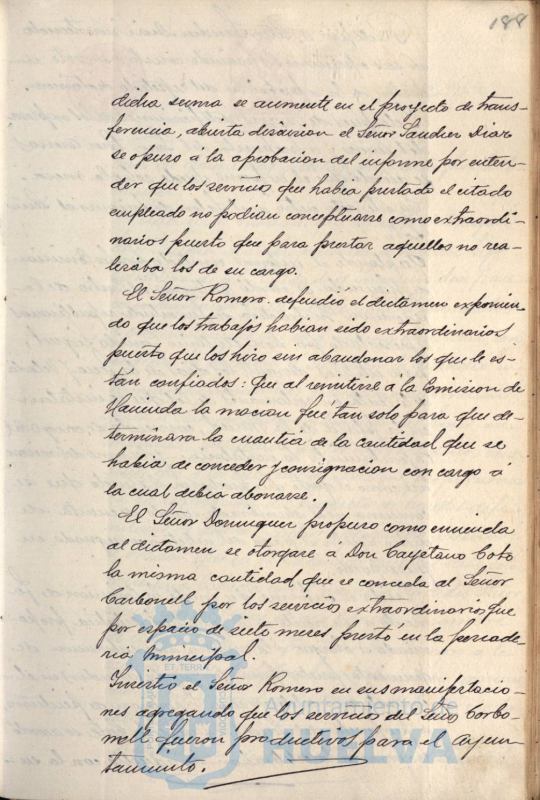 188
dicha suma se aumente en el proyecto de trans-
ferencia, abierta discusion el Señor Sanchez Diaz
se opuso á la aprobacion del informe por enten-
der que los servicios que habia prestado el citado
empleado no podian conceptuarse como extraordi-
narios puesto que para prestar aquellos no rea-
lizaba los de su cargo.
El Señor Romero defendió el dictamen exponien-
do que los trabajos habian sido extraordinarios
puesto que los hizo sin abandonar los que le es-
tan confiados: Que al remitirse á la Comision de
Hacienda la mocion fué tan solo para que de-
terminara la cuantia de la cantidad que se
habia de conceder y consignacion con cargo á
la cual debia abonarse.
El Señor Dominguez propuso como enmienda
al dictamen se otorgase á Don Cayetano Coto
la misma cantidad que se conceda al Señor
Carbonell por los servicios extraordinarios que
por espacio de siete meses prestó en la pescade-
ria Municipal.
Insistió el Señor Romero en sus manifestacio-
nes agregando que los servicios del Señor Carbo-
nell fueron productivos para el Ayun-
tamiento.
ET TERRÆ
Ayuntamiento de
HUELVA